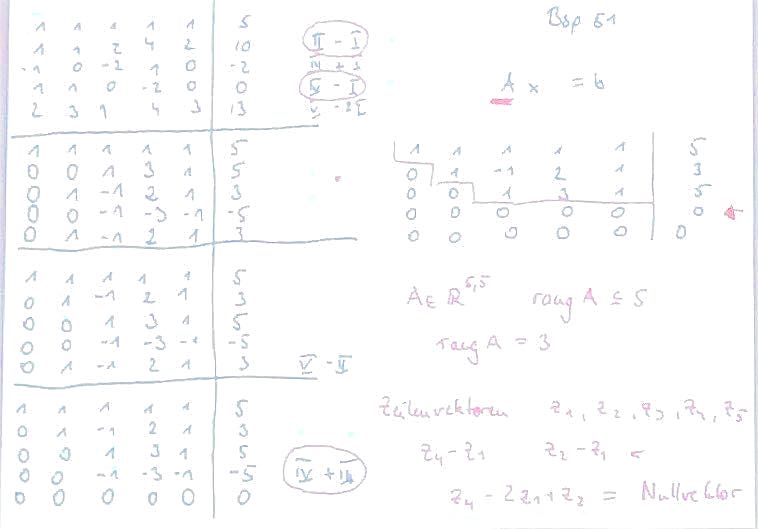 1 1 1 1 1 5
1 1 2 4 2 10 II - I
-1 0 -2 1 0 -2 III + I
1 1 0 -2 0 0 IV - I
2 3 1 4 3 13 V - 2I
1 1 1 1 1 5
0 0 1 3 1 5
0 1 -1 2 1 3
0 0 -1 -3 -1 -5
0 1 -1 2 1 3
1 1 1 1 1 5
0 1 -1 2 1 3
0 0 1 3 1 5
0 0 -1 -3 -1 -5
0 1 -1 2 1 3 V - II
1 1 1 1 1 5
0 1 -1 2 1 3
0 0 1 3 1 5
0 0 -1 -3 -1 -5 IV + III
0 0 0 0 0 0
Bsp 51
A x = b
1 1 1 1 1 5
0 1 -1 2 1 3
0 0 1 3 1 5
0 0 0 0 0 0
0 0 0 0 0 0
A ∈ ℝ^5,5 rang A ≤ 5
rang A = 3
Zeilenvektoren z1, z2, z3, z4, z5
z4 - z1 z2 - z1
z4 - 2z1 + z2 = Nullvektor